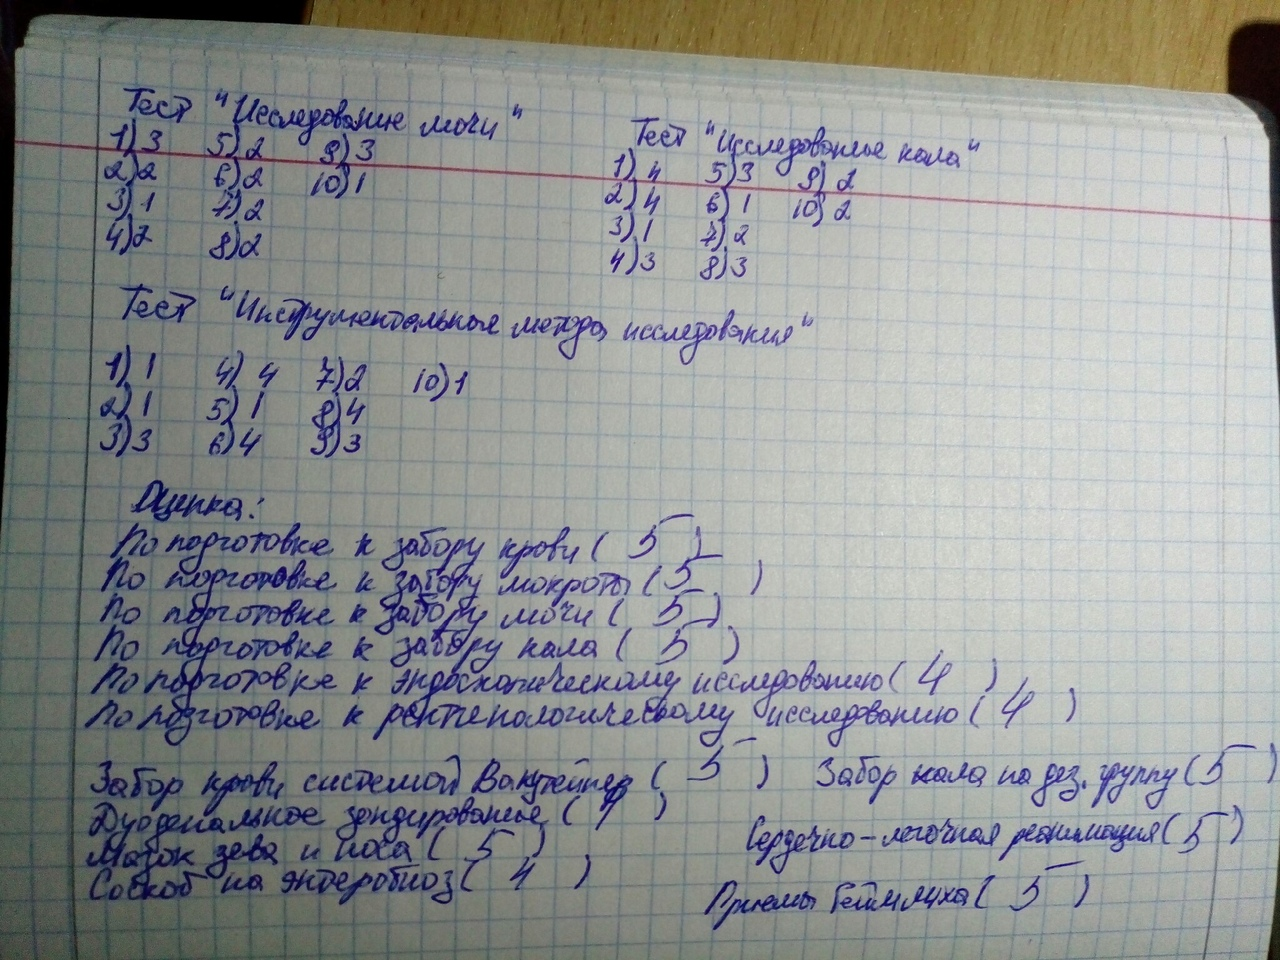 Тест "Исследование мочи"
1) 3 5) 2 9) 3
2) 2 6) 2 10) 1
3) 1 7) 2
4) 2 8) 2
Тест "Исследование кала"
1) 4 5) 3 9) 2
2) 4 6) 1 10) 2
3) 1 7) 2
4) 3 8) 3
Тест "Инструментальные методы исследования"
1) 1 4) 4 7) 2 10) 1
2) 1 5) 1 8) 4
3) 3 6) 4 9) 3
Оценка:
По подготовке к забору крови ( 5 )
По подготовке к забору мокроты ( 5 )
По подготовке к забору мочи ( 5 )
По подготовке к забору кала ( 5 )
По подготовке к эндоскопическому исследованию ( 4 )
По подготовке к рентгенологическому исследованию ( 4 )
Забор крови системой Вакутейнер ( 5 )
Дуоденальное зондирование ( 4 )
Мазок зева и носа ( 5 )
Соскоб на энтеробиоз ( 4 )
Забор кала на дез. группу ( 5 )
Сердечно-легочная реанимация ( 5 )
Приемы Геймлиха ( 5 )